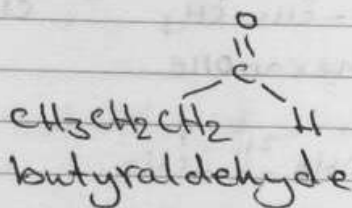 O
||
C
CH3CH2CH2 H
butyraldehyde